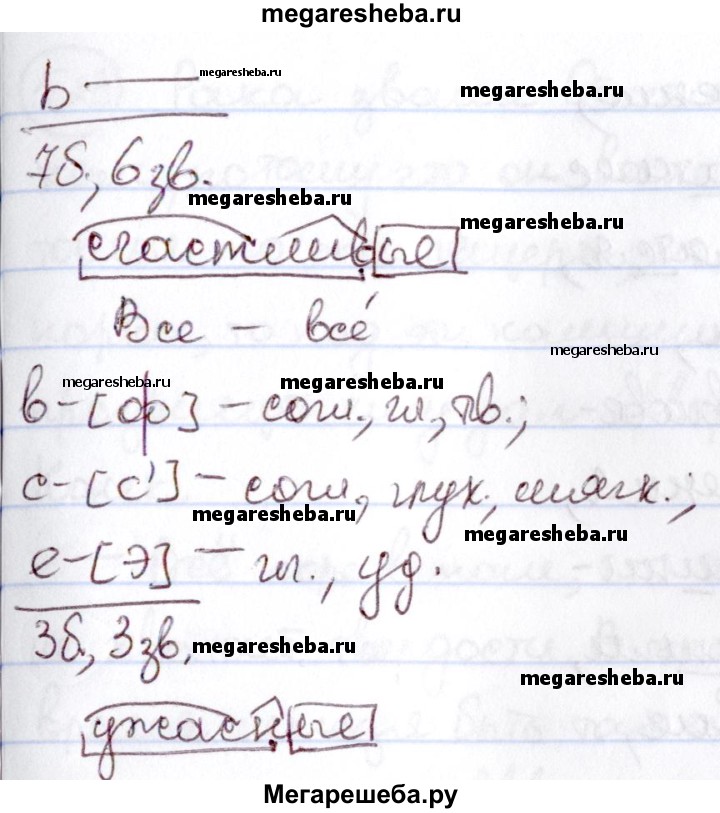 megaresheba.ru
ь ———
megaresheba.ru
megaresheba.ru
7б., 6 зв.
megaresheba.ru
megaresheba.ru
счастливые
Все – все́
megaresheba.ru
megaresheba.ru
megaresheba.ru
в – [ф] – согл., гл., тв.;
с – [с'] – согл., глух., мягк.;
megaresheba.ru
megaresheba.ru
е – [э] – гл., уд.
3б., 3 зв.
megaresheba.ru
megaresheba.ru
ужасные
Мегарешеба.ру